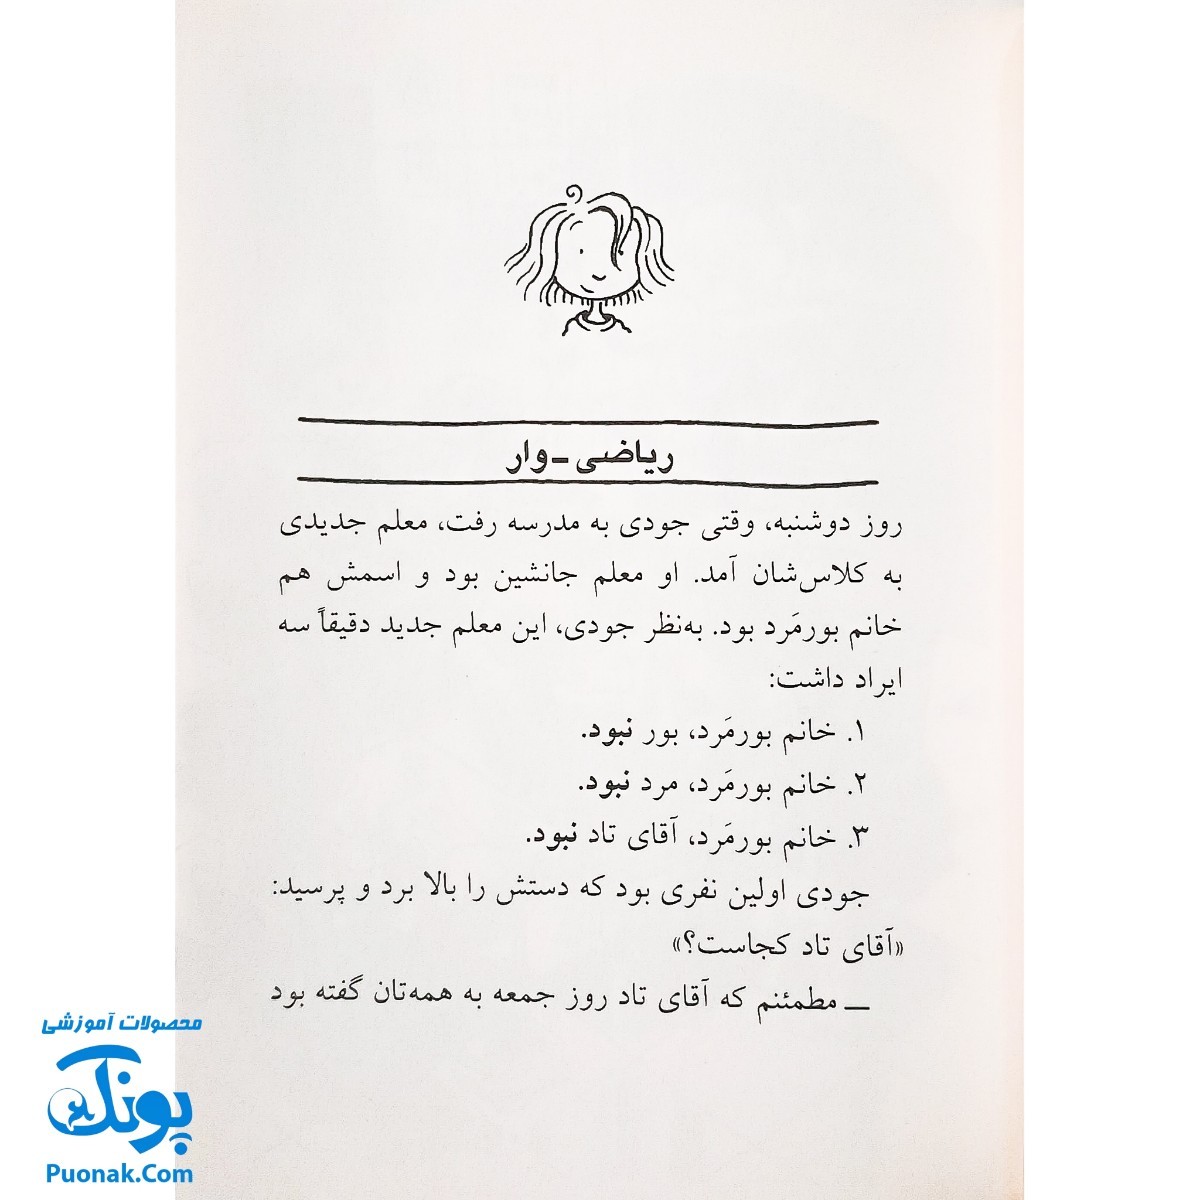 ریاضی ـ وار
روز دوشنبه، وقتی جودی به مدرسه رفت، معلم جدیدی
به کلاس‌شان آمد. او معلم جانشین بود و اسمش هم
خانم بورمَرد بود. به‌نظر جودی، این معلم جدید دقیقاً سه
ایراد داشت:
۱. خانم بورمَرد، بور نبود.
۲. خانم بورمَرد، مرد نبود.
۳. خانم بورمَرد، آقای تاد نبود.
جودی اولین نفری بود که دستش را بالا برد و پرسید:
«آقای تاد کجاست؟»
ـــ مطمئنم که آقای تاد روز جمعه به همه‌تان گفته بود
محصولات آموزشی
پونک
Puonak.Com